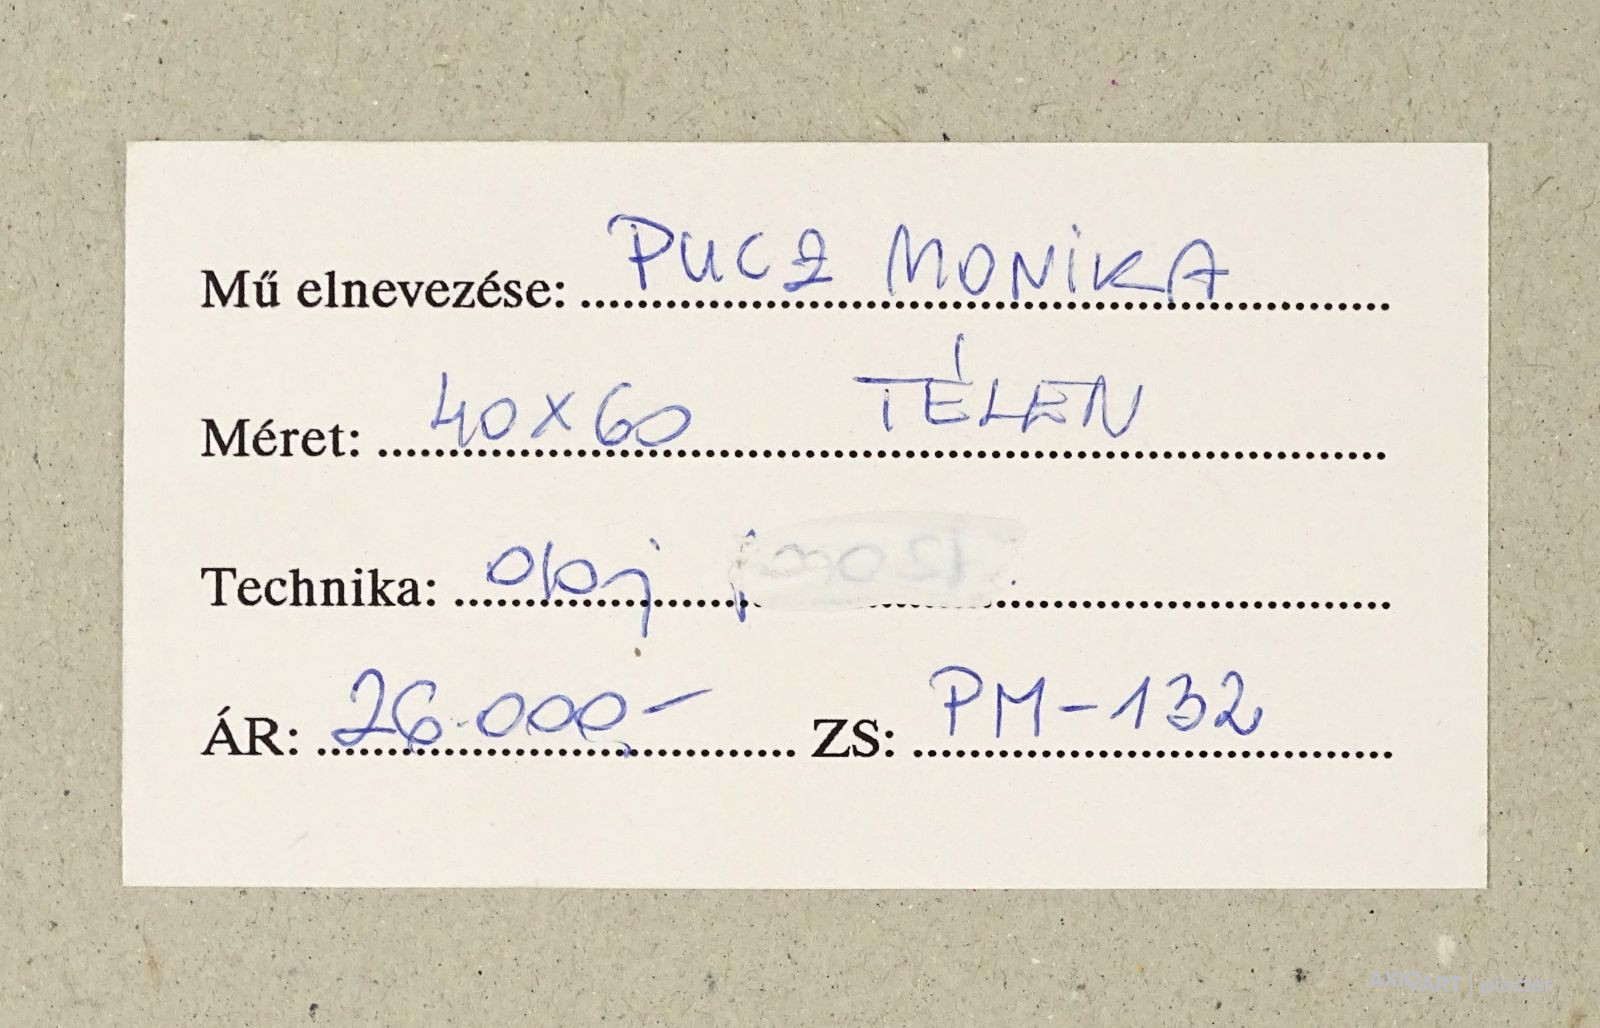 Mű elnevezése: PUCZ MONIKA
Méret: 40x60 TÉLEN
Technika: obj
ÁR: 26.000,- ZS: PM-132